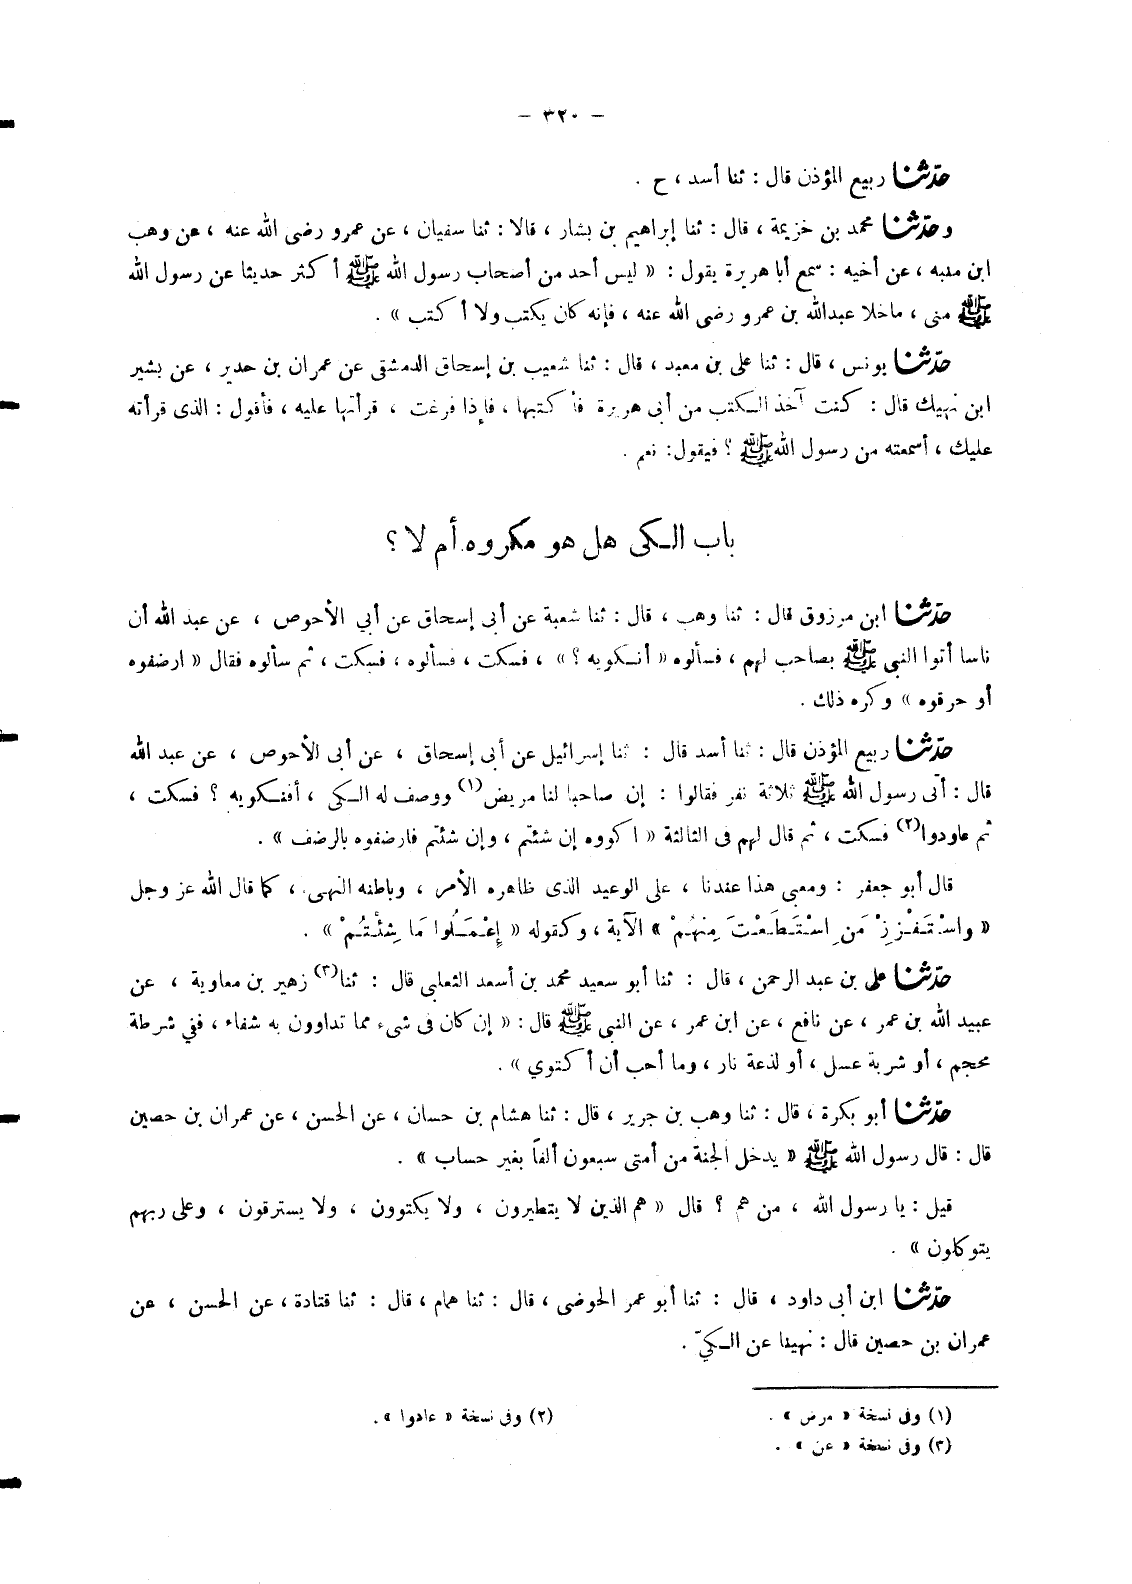 – ٣٢٠ –
حدّثنا ربيع المؤذن قال : ثنا أسد ، ح .
وحدّثنا محمد بن خزيمة ، قال : ثنا إبراهيم بن بشار ، قالا : ثنا سفيان ، عن عمرو رضى الله عنه ، عن وهب
ابن منبه ، عن أخيه : سمع أبا هريرة يقول : « ليس أحد من أصحاب رسول الله ﷺ أكثر حديثا عن رسول الله
ﷺ منى ، ماخلا عبدالله بن عمرو رضى الله عنه ، فإنه كان يكتب ولا أكتب » .
حدّثنا يونس ، قال : ثنا على بن معبد ، قال : ثنا شعيب بن إسحاق الدمشقى عن عمران بن حدير ، عن بشير
ابن نهيك قال : كنت آخذ الكتب من أبى هريرة فأكتبها ، فإذا فرغت ، قرأتها عليه ، فأقول : الذى قرأته
عليك ، أسمعته من رسول الله ﷺ ؟ فيقول : نعم .
باب الكى هل هو مكروه أم لا ؟
حدّثنا ابن مرزوق قال : ثنا وهب ، قال : ثنا شعبة عن أبى إسحاق عن أبي الأحوص ، عن عبد الله أن
ناسا أتوا النبى ﷺ بصاحب لهم ، فسألوه « أنكويه ؟ » ، فسكت ، فسألوه ، فسكت ، ثم سألوه فقال « ارضفوه
أو حرقوه » وكره ذلك .
حدّثنا ربيع المؤذن قال : ثنا أسد قال : ثنا إسرائيل عن أبى إسحاق ، عن أبى الأحوص ، عن عبد الله
قال : أتى رسول الله ﷺ ثلاثة نفر فقالوا : إن صاحبا لنا مريض(١) ووصف له الكى ، أفنكويه ؟ فسكت ،
ثم عاودوا(٢) فسكت ، ثم قال لهم فى الثالثة « اكووه إن شئتم ، وإن شئتم فارضفوه بالرضف » .
قال أبو جعفر : ومعنى هذا عندنا ، على الوعيد الذى ظاهره الأمر ، وباطنه النهى ، كما قال الله عز وجل
« واسْتَفْزِزْ مَن اسْتَطَعْتَ مِنهُمْ » الآية ، وكقوله « إعْمَلُوا مَا شِئْتُمْ » .
حدّثنا على بن عبد الرحمن ، قال : ثنا أبو سعيد محمد بن أسعد الثعلبى قال : ثنا(٣) زهير بن معاوية ، عن
عبيد الله بن عمر ، عن نافع ، عن ابن عمر ، عن النبى ﷺ قال : « إن كان فى شىء مما تداوون به شفاء ، ففي شرطة
محجم ، أو شربة عسل ، أو لذعة نار ، وما أحب أن أكتوي » .
حدّثنا أبو بكرة ، قال : ثنا وهب بن جرير ، قال : ثنا هشام بن حسان ، عن الحسن ، عن عمران بن حصين
قال : قال رسول الله ﷺ « يدخل الجنة من أمتى سبعون ألفاً بغير حساب » .
قيل : يا رسول الله ، من هم ؟ قال « هم الذين لا يتطيرون ، ولا يكتوون ، ولا يسترقون ، وعلى ربهم
يتوكلون » .
حدّثنا ابن أبى داود ، قال : ثنا أبو عمر الحوضى ، قال : ثنا همام ، قال : ثنا قتادة ، عن الحسن ، عن
عمران بن حصين قال : نهينا عن الكيّ .
(١) وفى نسخة « مرض » . (٢) وفى نسخة « عادوا » .
(٣) وفى نسخة « عن » .